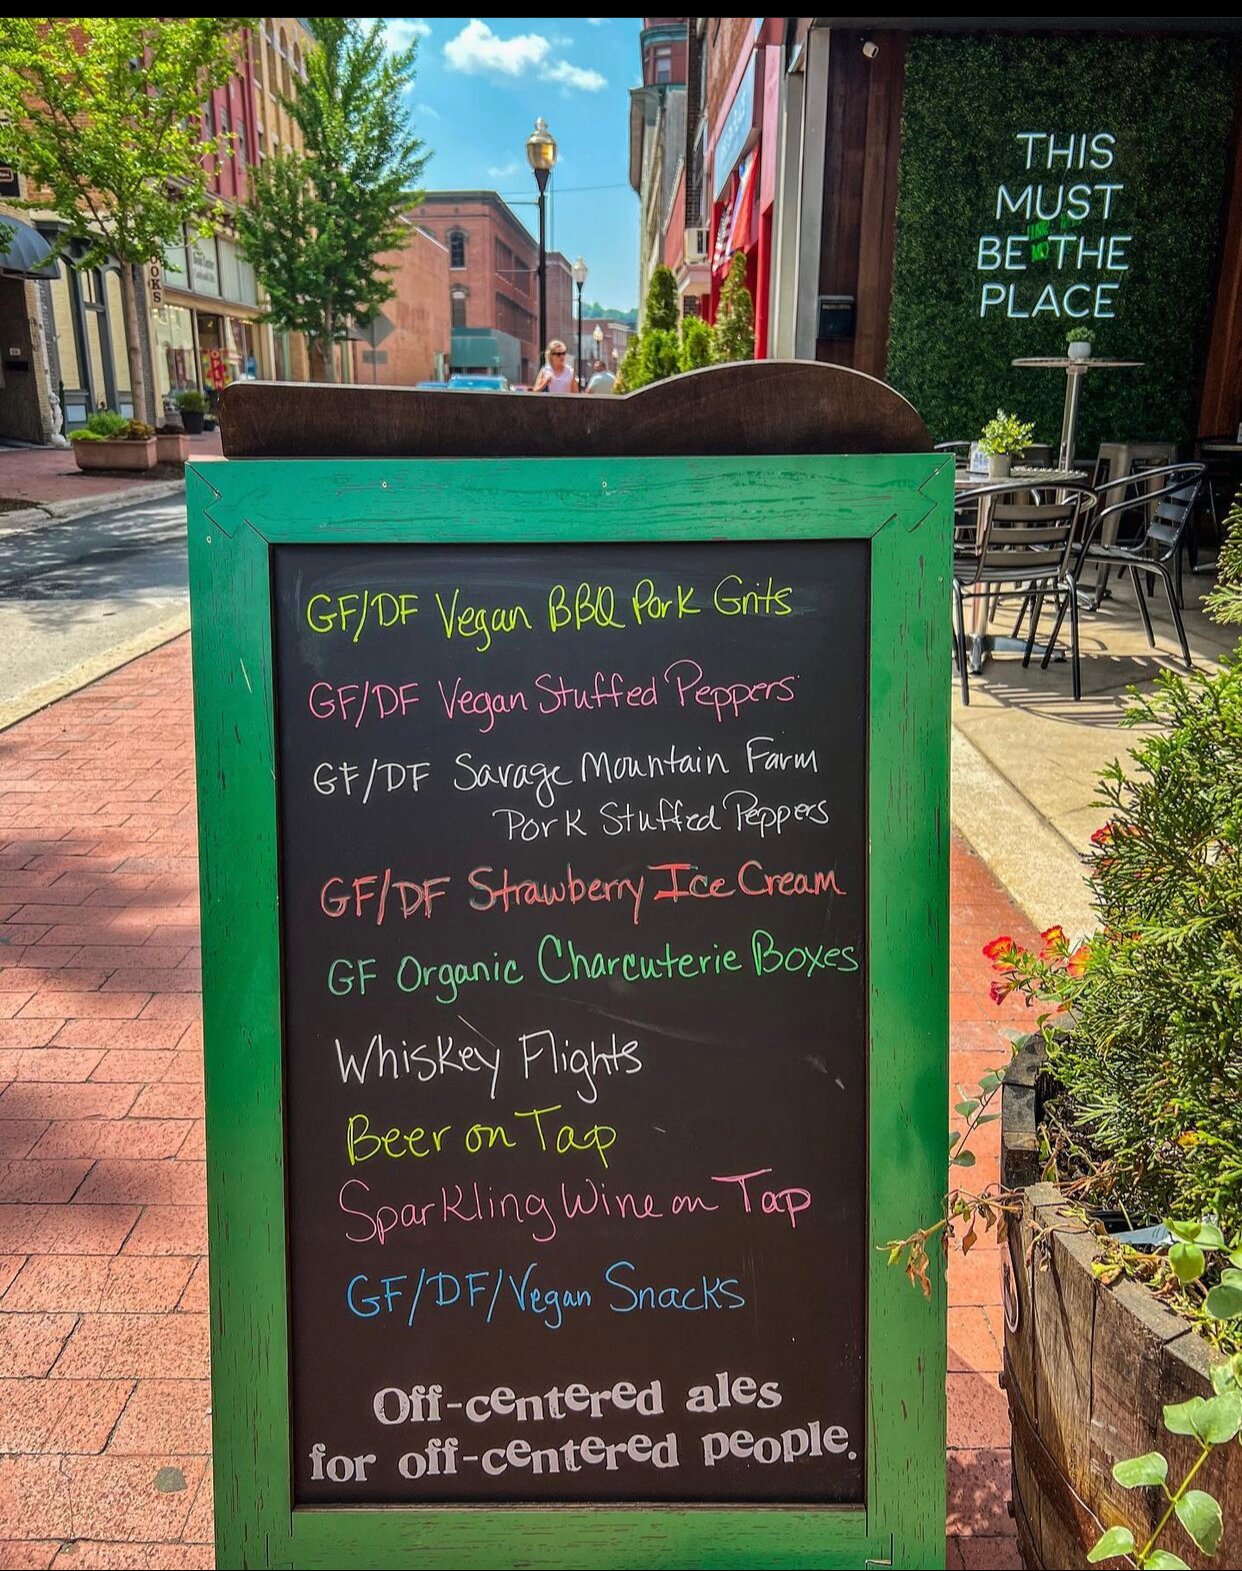 THIS
MUST
BE THE
PLACE
GF/DF Vegan BBQ Pork Grits
GF/DF Vegan Stuffed Peppers
GF/DF Savage Mountain Farm
Pork Stuffed Peppers
GF/DF Strawberry Ice Cream
GF Organic Charcuterie Boxes
Whiskey Flights
Beer on Tap
Sparkling Wine on Tap
GF/DF/Vegan Snacks
Off-centered ales
for off-centered people.